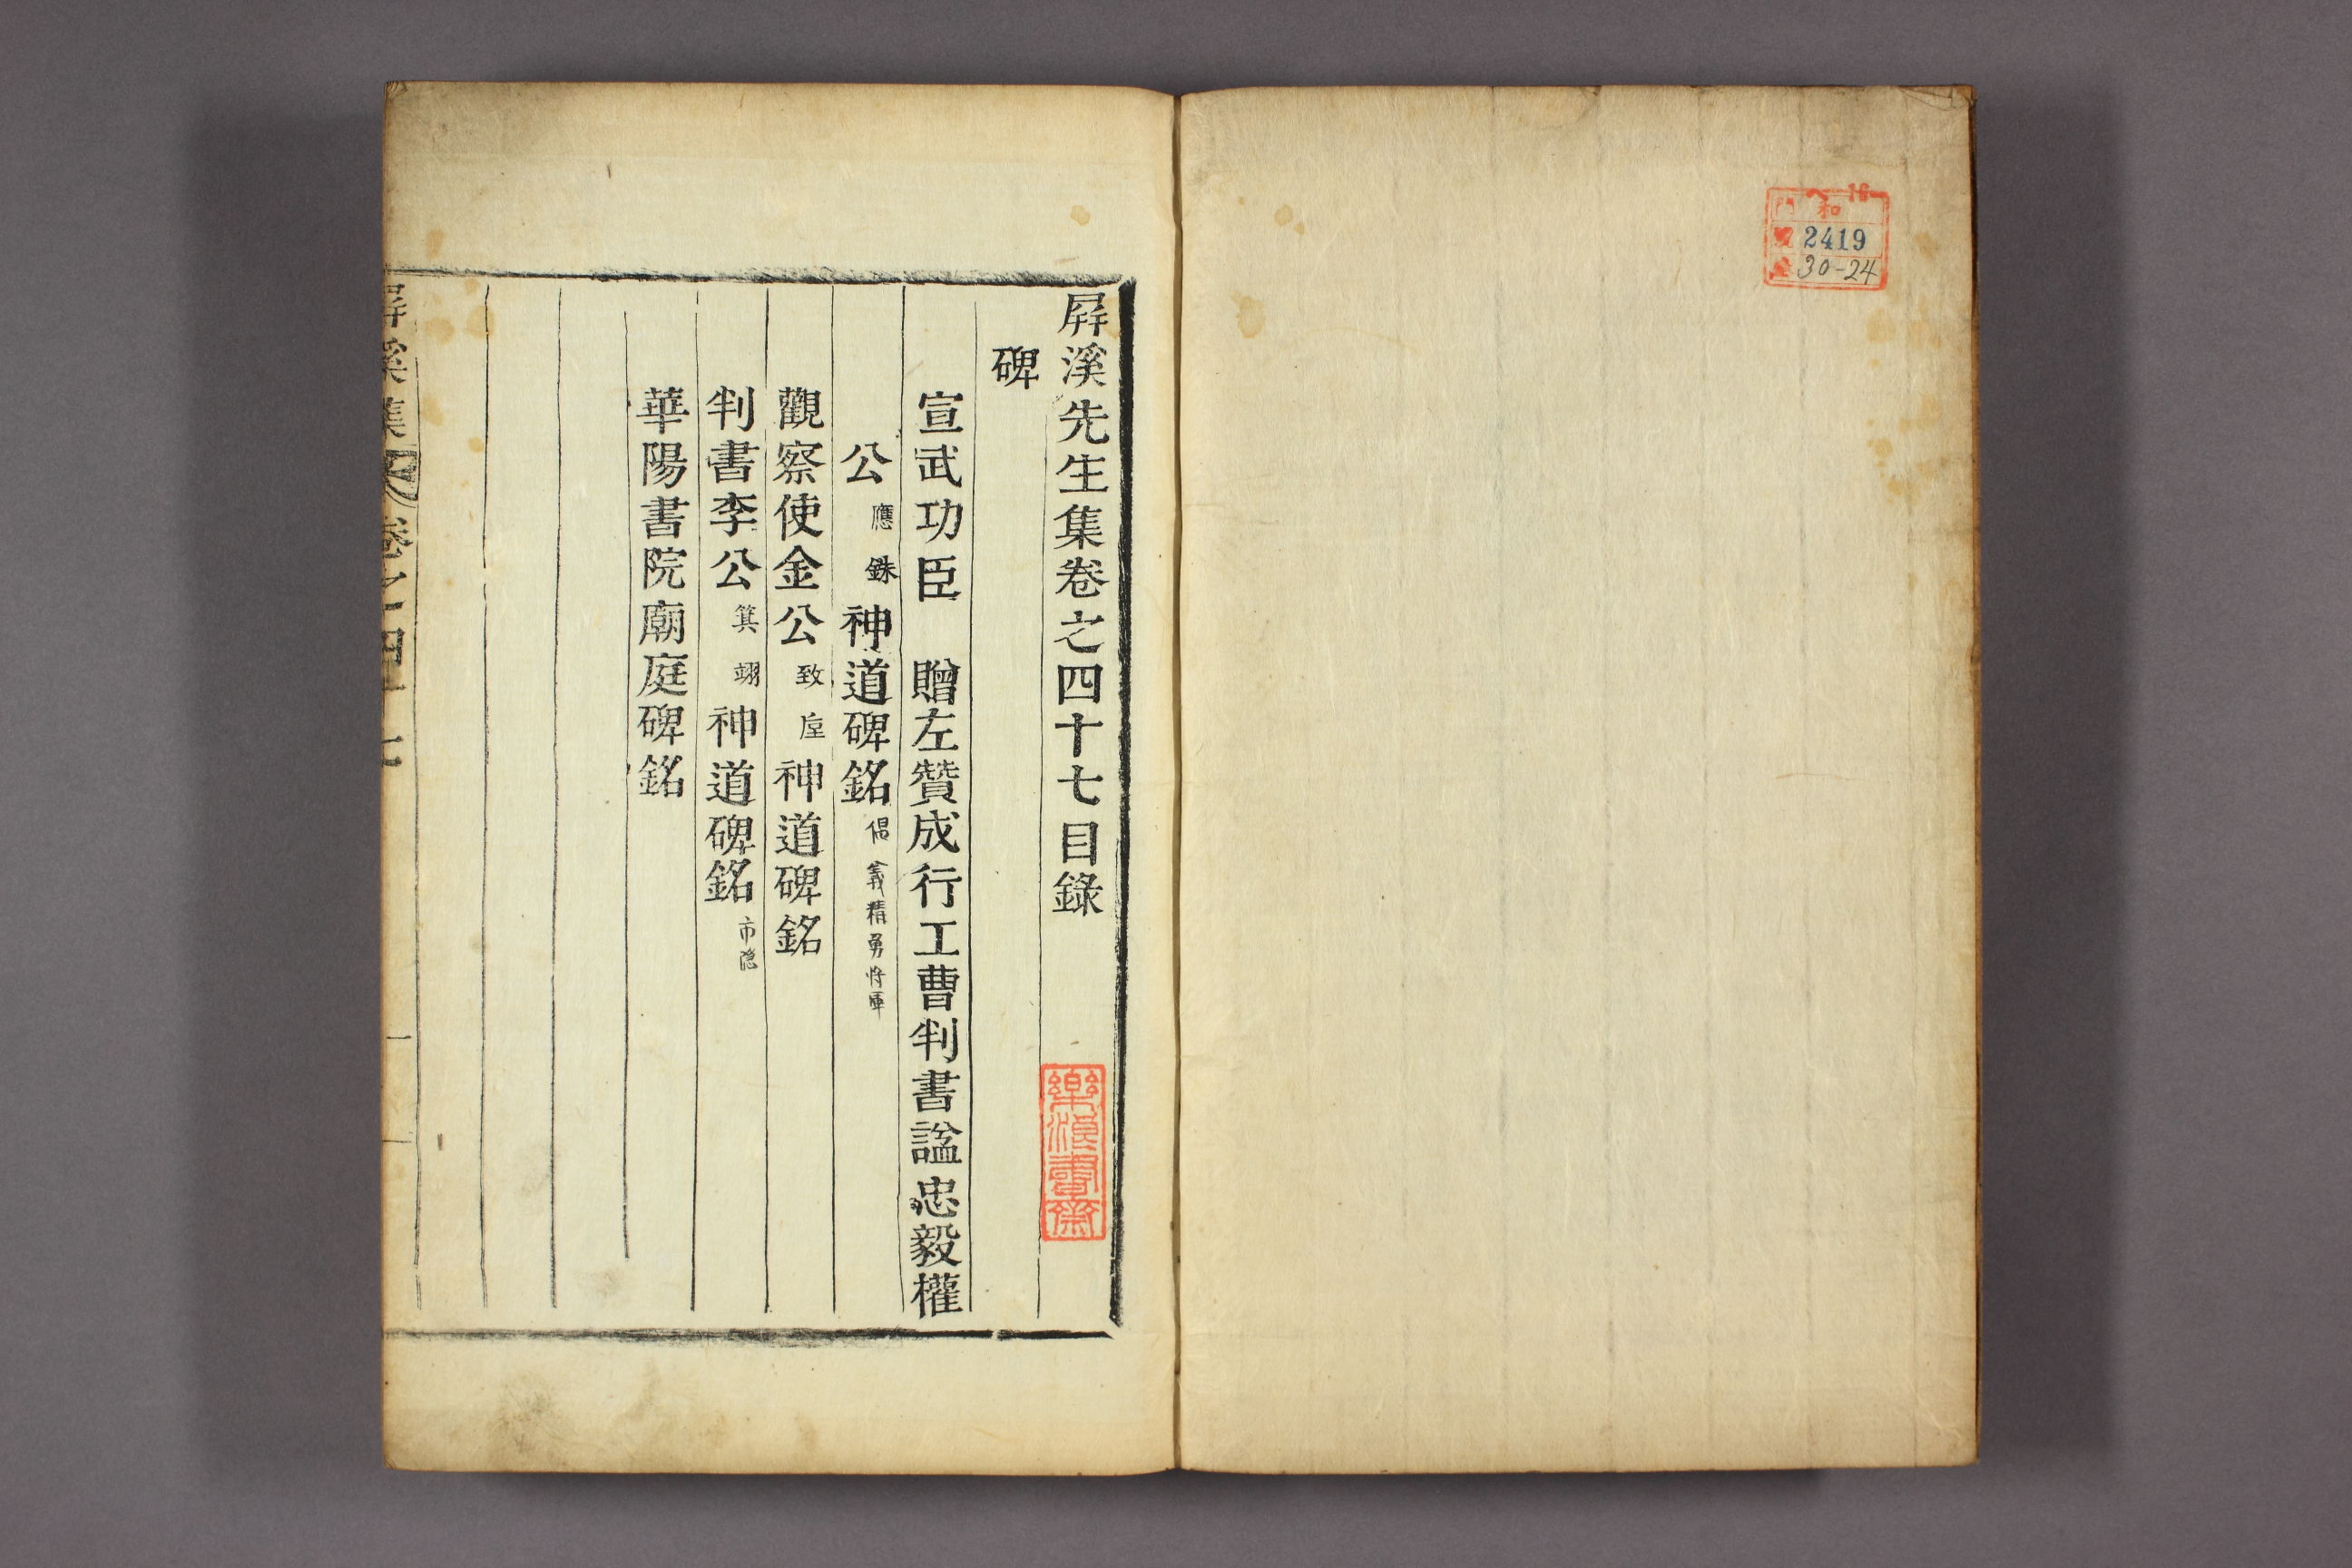 へ 16
門 和
號 2419
30-24
屛溪先生集卷之四十七目錄
碑
宣武功臣 贈左贊成行工曹判書諡忠毅權
公應銖神道碑銘倡義精勇將軍
觀察使金公致垕神道碑銘
判書李公箕翊神道碑銘市隱
華陽書院廟庭碑銘
屛溪集 卷之四十七 一